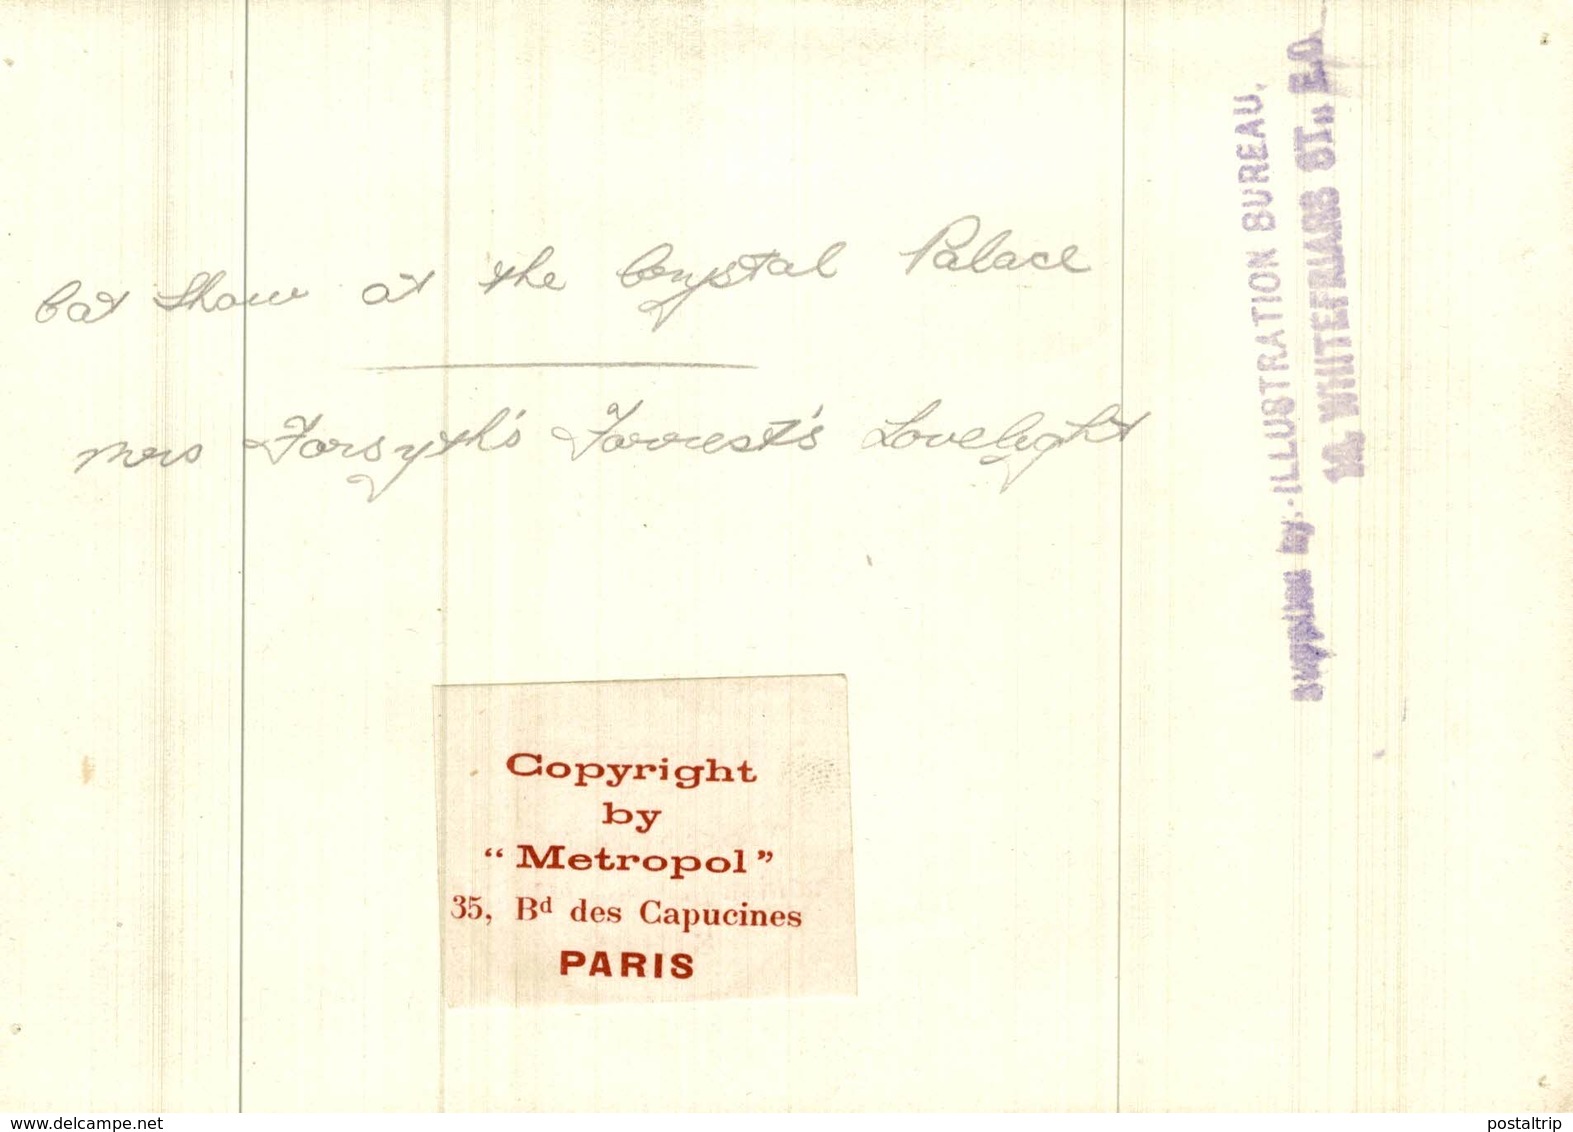 Cat Show at the Crystal Palace
Mrs Forsyth's Forrest's Lovelight
Copyright
by
“Metropol”
35, Bd des Capucines
PARIS
Supplied by ILLUSTRATION BUREAU,
10, WHITEFRIARS ST., E.C.
delcampe.net
postaltrip